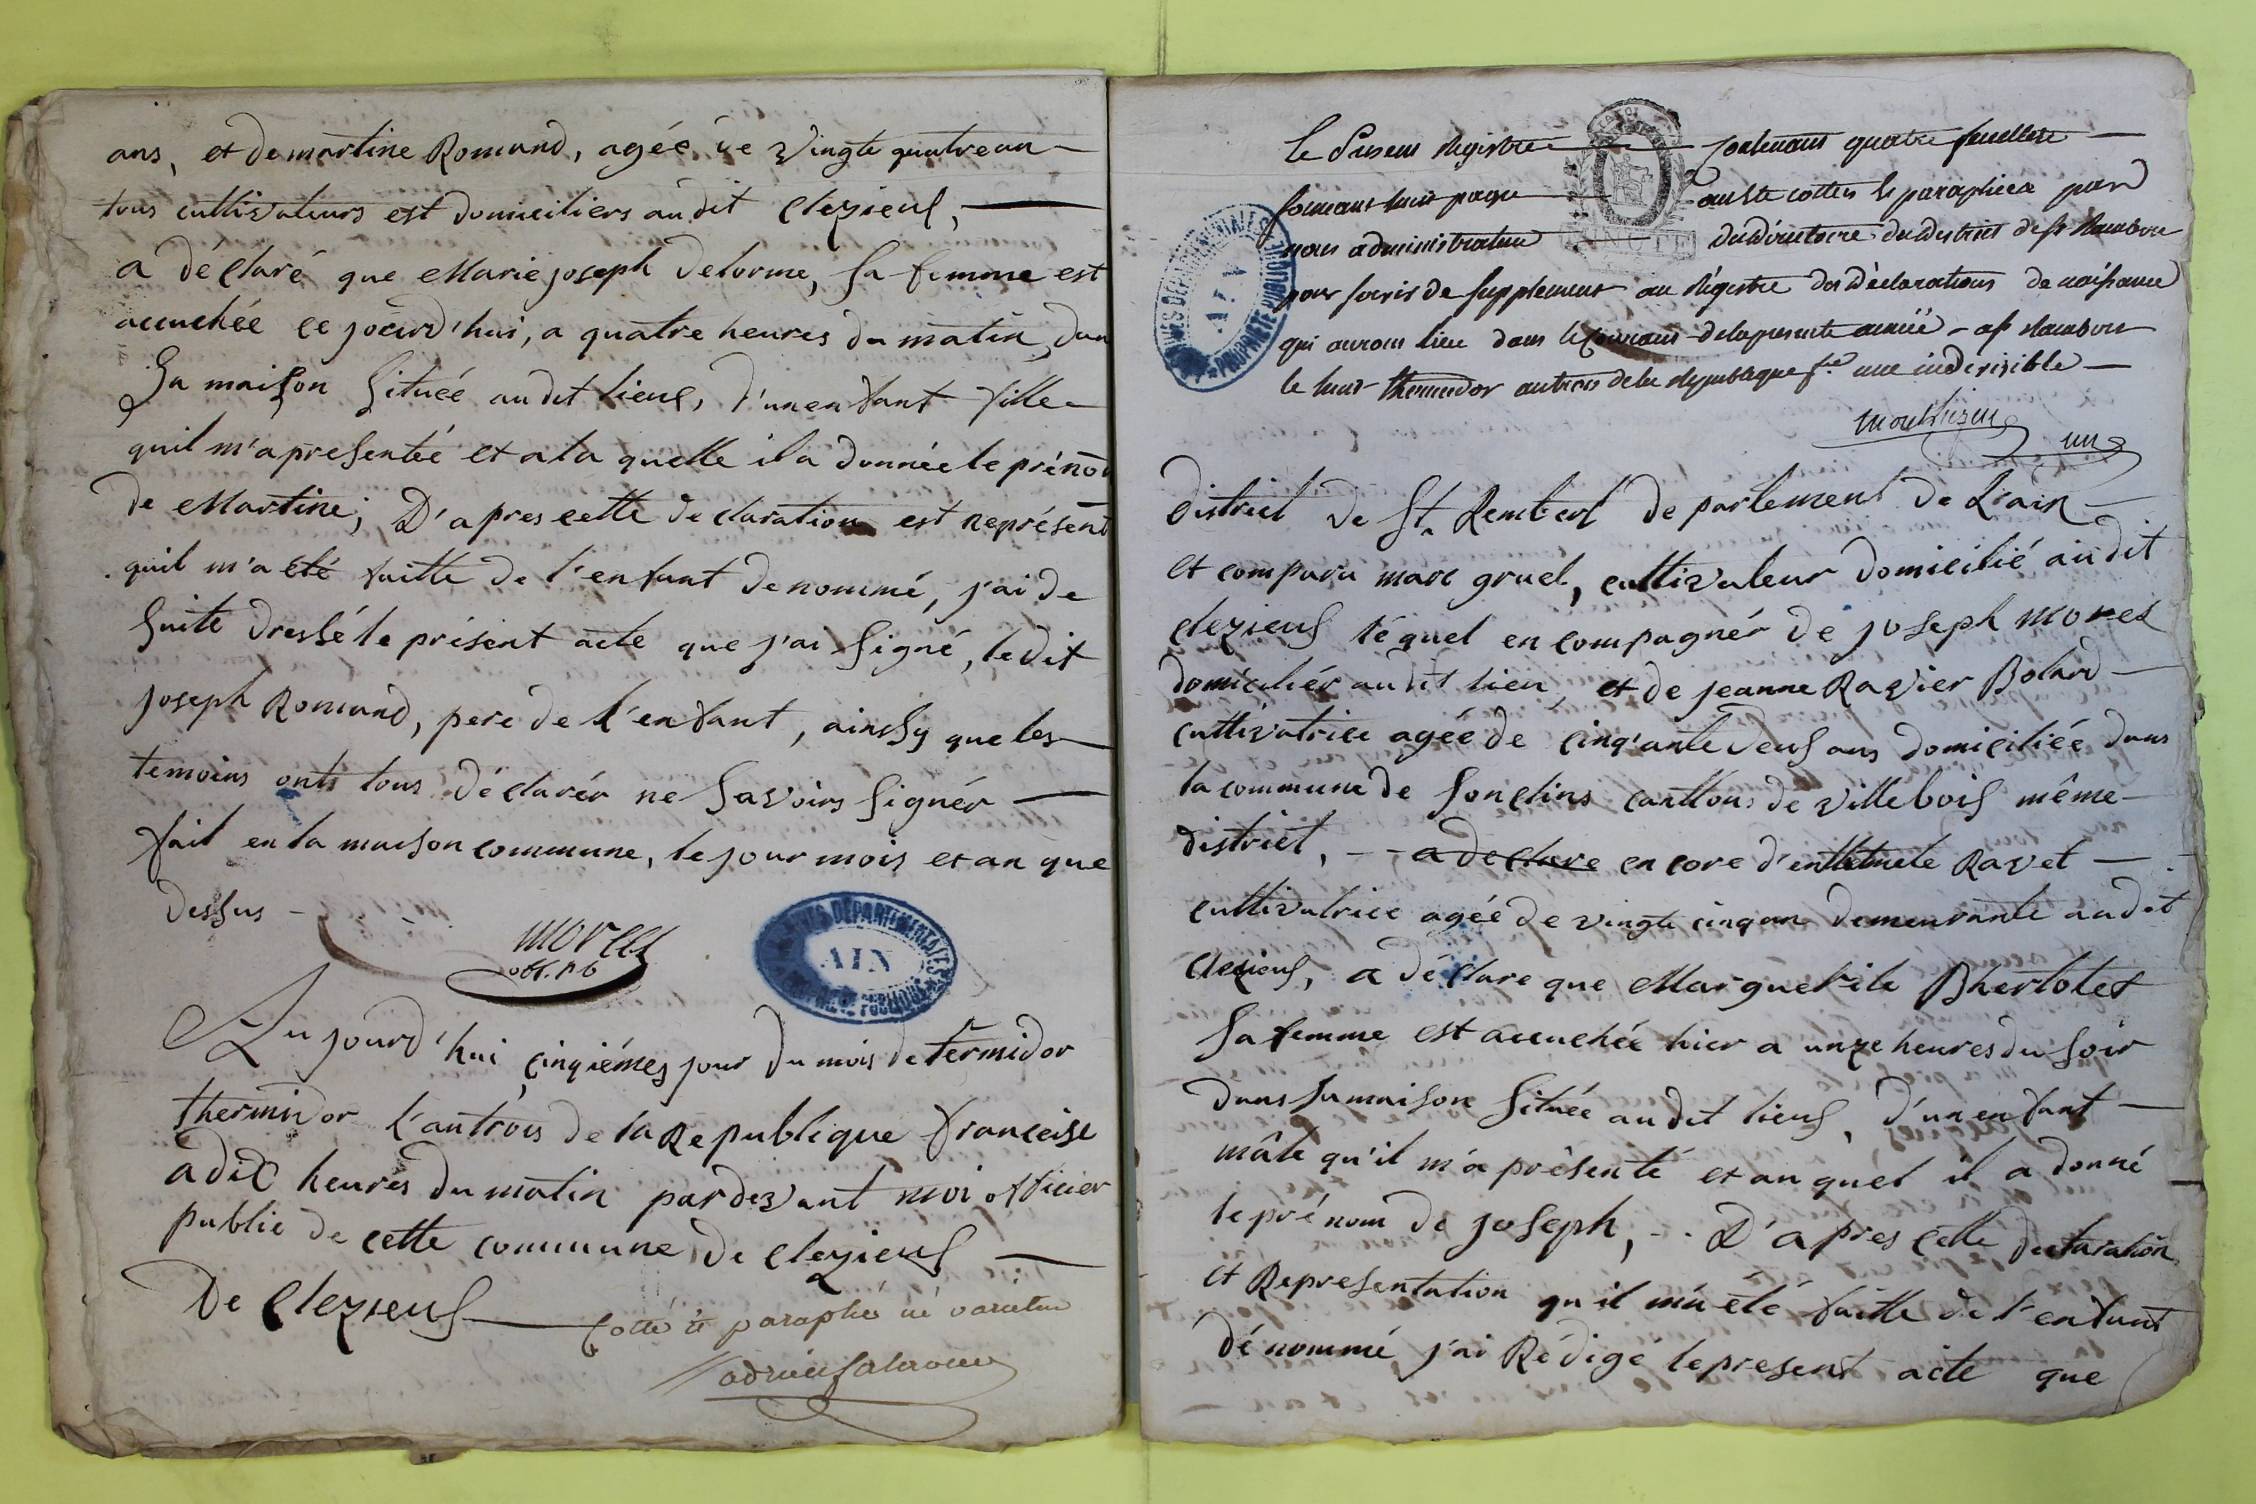 ans, et de martine Romand, agée de vingte quatre an
tous cultivateurs est domiciliers au dit clezieuf,
a déclaré que Marie joseph Delorme, sa femme est
accuchée ce jourd'hui, a quatre heures du matin, dan
sa maison située au dit lieuf, d'un enfant fille
quil m'a presentée et a la quelle il a donnée le prénom
de Martine; D'apres cette declaration est représent
quil m'a été faitte de l'enfant denommé, j'ai de
suite dressé le présent acte que j'ai signé, le dit
joseph Romand, pere de l'enfant, ainsy que les
temoins onts tous déclarér ne savoirs signér
fait en la maison commune, le jour mois et an que
dessus
morel
off. pb
ARCHIVES DÉPARTEMENTALES
AIN
PROPRIÉTÉ PUBLIQUE
Au jourd'hui cinqiémes jour du mois de termidor
thermidor l'an trois de la Republique françeise
a dix heures du matin pardevant moi officier
public de cette commune de clezieuf
De Clezieuf
Cotté et paraphé né varietur
Le présent régistre contenant quatre feuillets
formant huit pages
nous administrateur du directoire du district de St Rambert
pour servir de supplement au régistre des déclarations de naissance
qui auront lieu dans le courant de la presente année a St Rambert
le huit thermidor an trois de la république fse une indivisible
ARCHIVES DÉPARTEMENTALES
AIN
PROPRIÉTÉ PUBLIQUE
district de St. Rembert departement de L'ain
et comparu marc gruel, cultivateur domicilié au dit
clezieuf léquel en compagnér de joseph Morel
domiciliér au dit lieu, et de jeanne Ravier Bolard
cultivatrice agée de cinq'ante deuf ans domiciliée dans
la commune de Sonclins canttons de villeboif même
district, a declare encore d'enttemele Ravet
cultivatrice agée de vingte cinq an demeurante au dit
clezieuf, a déclare que Marguerite Bhertolet
sa femme est accuchée hier a unze heures du soir
dans sa maison située au dit lieuf, d'un enfant
mâle qu'il m'a présenté et au quel il a donné
le prénom de joseph, D'apres cette declaration
et Representation qu'il m'a été faitte de l'enfant
dénommé j'ai Rédigé le present acte que